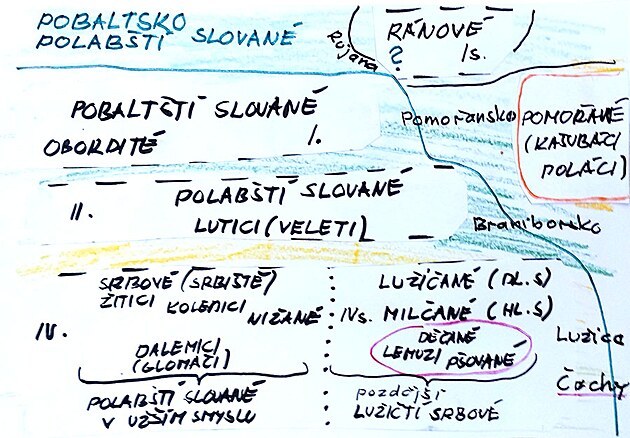 POBALTSKO
POLABŠTÍ SLOVANÉ
RÁNOVÉ
? Is.
Rujana
POBALTŠTÍ SLOVANÉ
OBORDITÉ I.
Pomořansko
POMOŘANÉ
(KAŠUBACI
POLÁCI)
II. POLABŠTÍ SLOVANÉ
LUTICI (VELETI)
Braniborsko
SRBOVÉ (SRBIŠTĚ)
ŽITICI KOLEDICI
NIŽANÉ
IV.
DALEMICI
(GLOMAČI)
POLABŠTÍ SLOVANÉ
V UŽŠÍM SMYSLU
LUŽIČANÉ (DL.S)
IVs. MILČANÉ (HL.S)
DĚČANÉ
LEMUZI PŠOVANÉ
pozdější
LUŽIČTÍ SRBOVÉ
Lužice
Čachy